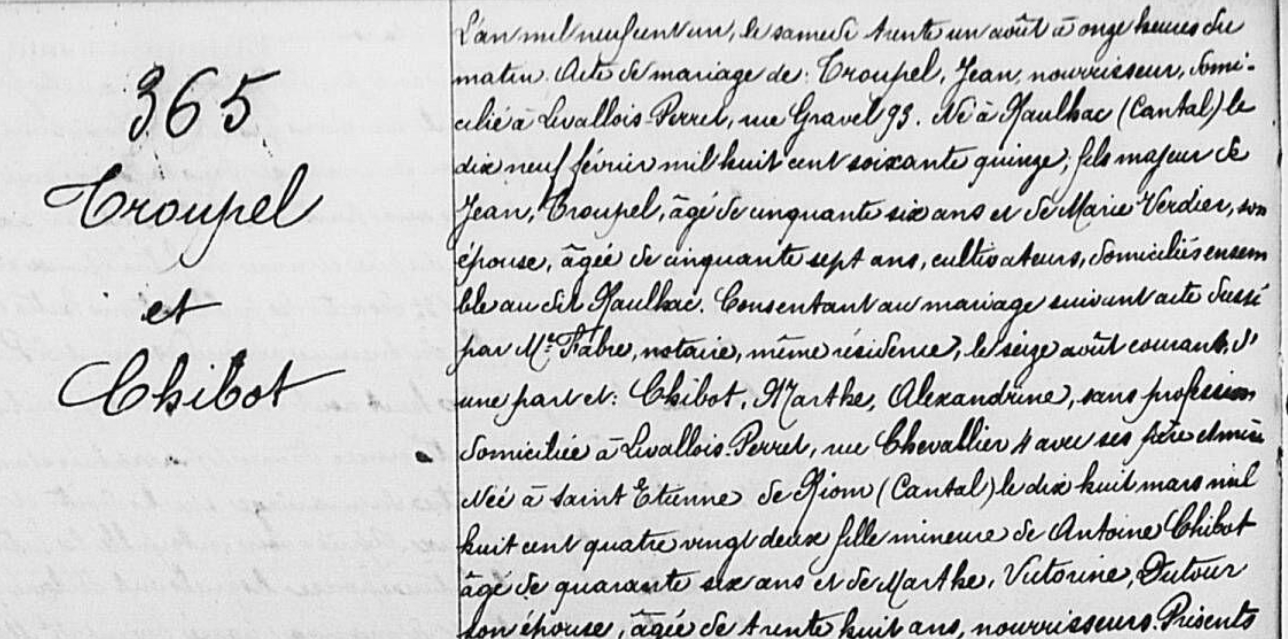 365
Troupel
et
Chibot
L'an mil neuf cent un, le samedi trente un août à onze heures du
matin. Acte de mariage de: Troupel, Jean, nourrisseur, domi-
cilié à Levallois-Perret, rue Gravel 93. Né à Raulhac (Cantal) le
dix neuf février mil huit cent soixante quinze; fils majeur de
Jean, Troupel, âgé de cinquante six ans et de Marie Verdier, son
épouse, âgée de cinquante sept ans, cultivateurs, domiciliés ensem
ble au dit Raulhac. Consentant au mariage suivant acte dressé
par Me Fabre, notaire, même résidence, le seize août courant, d'
une part et: Chibot, Marthe, Alexandrine, sans profession
domiciliée à Levallois-Perret, rue Chevallier 4 avec ses père et mère
Née à Saint Etienne de Riom (Cantal) le dix huit mars mil
huit cent quatre vingt deux fille mineure de Antoine Chibot
âgé de quarante six ans et de Marthe, Victorine, Dutour
son épouse, âgée de trente huit ans, nourrisseurs. Présents